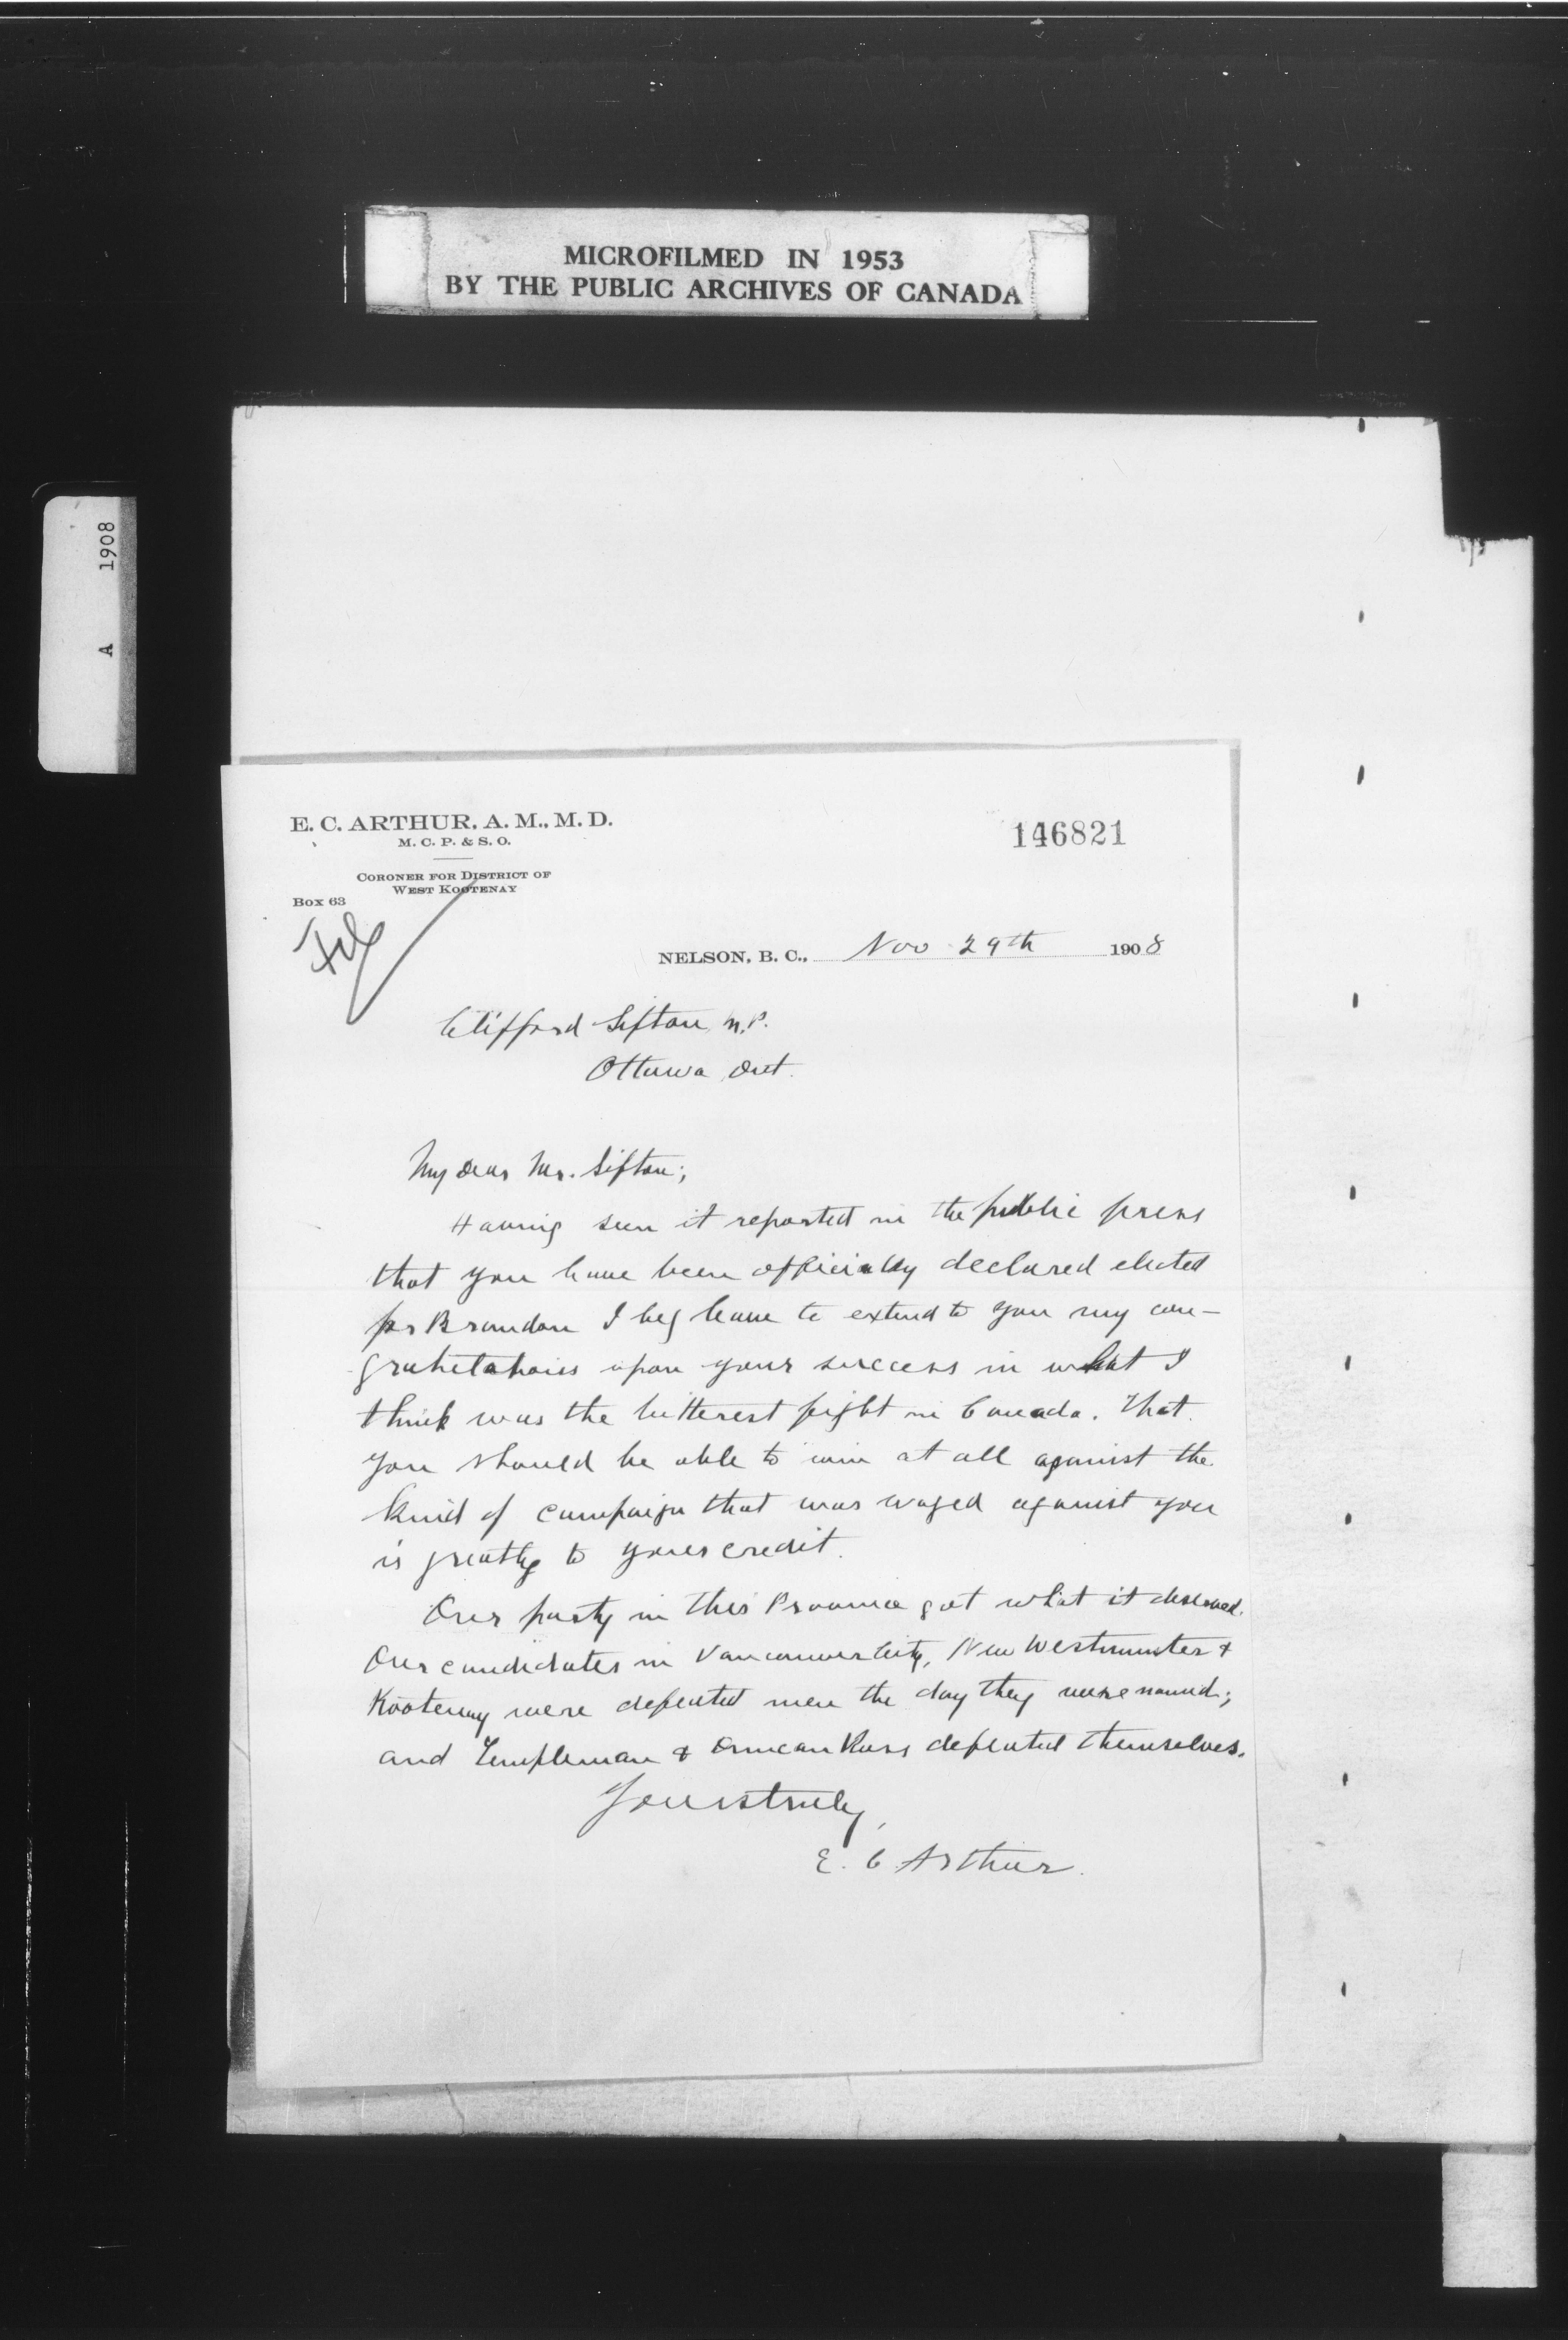 MICROFILMED IN 1953
BY THE PUBLIC ARCHIVES OF CANADA
A 1908
E. C. ARTHUR, A. M., M. D.
M. C. P. & S. O.
CORONER FOR DISTRICT OF
WEST KOOTENAY
Box 63
146821
File
NELSON, B. C., Nov 29th 1908
Clifford Sifton, M.P.
Ottawa, Ont.
My dear Mr. Sifton;
Having seen it reported in the public press
that you have been officially declared elected
for Brandon I beg leave to extend to you my con-
gratulations upon your success in what I
think was the bitterest fight in Canada. That
you should be able to win at all against the
kind of campaign that was waged against you
is greatly to your credit.
Our party in this Province got what it deserved.
Our candidates in Vancouver City, New Westminster &
Kootenay were defeated men the day they were named;
and Templeman & Duncan Ross defeated themselves.
Yours truly,
E. C Arthur.